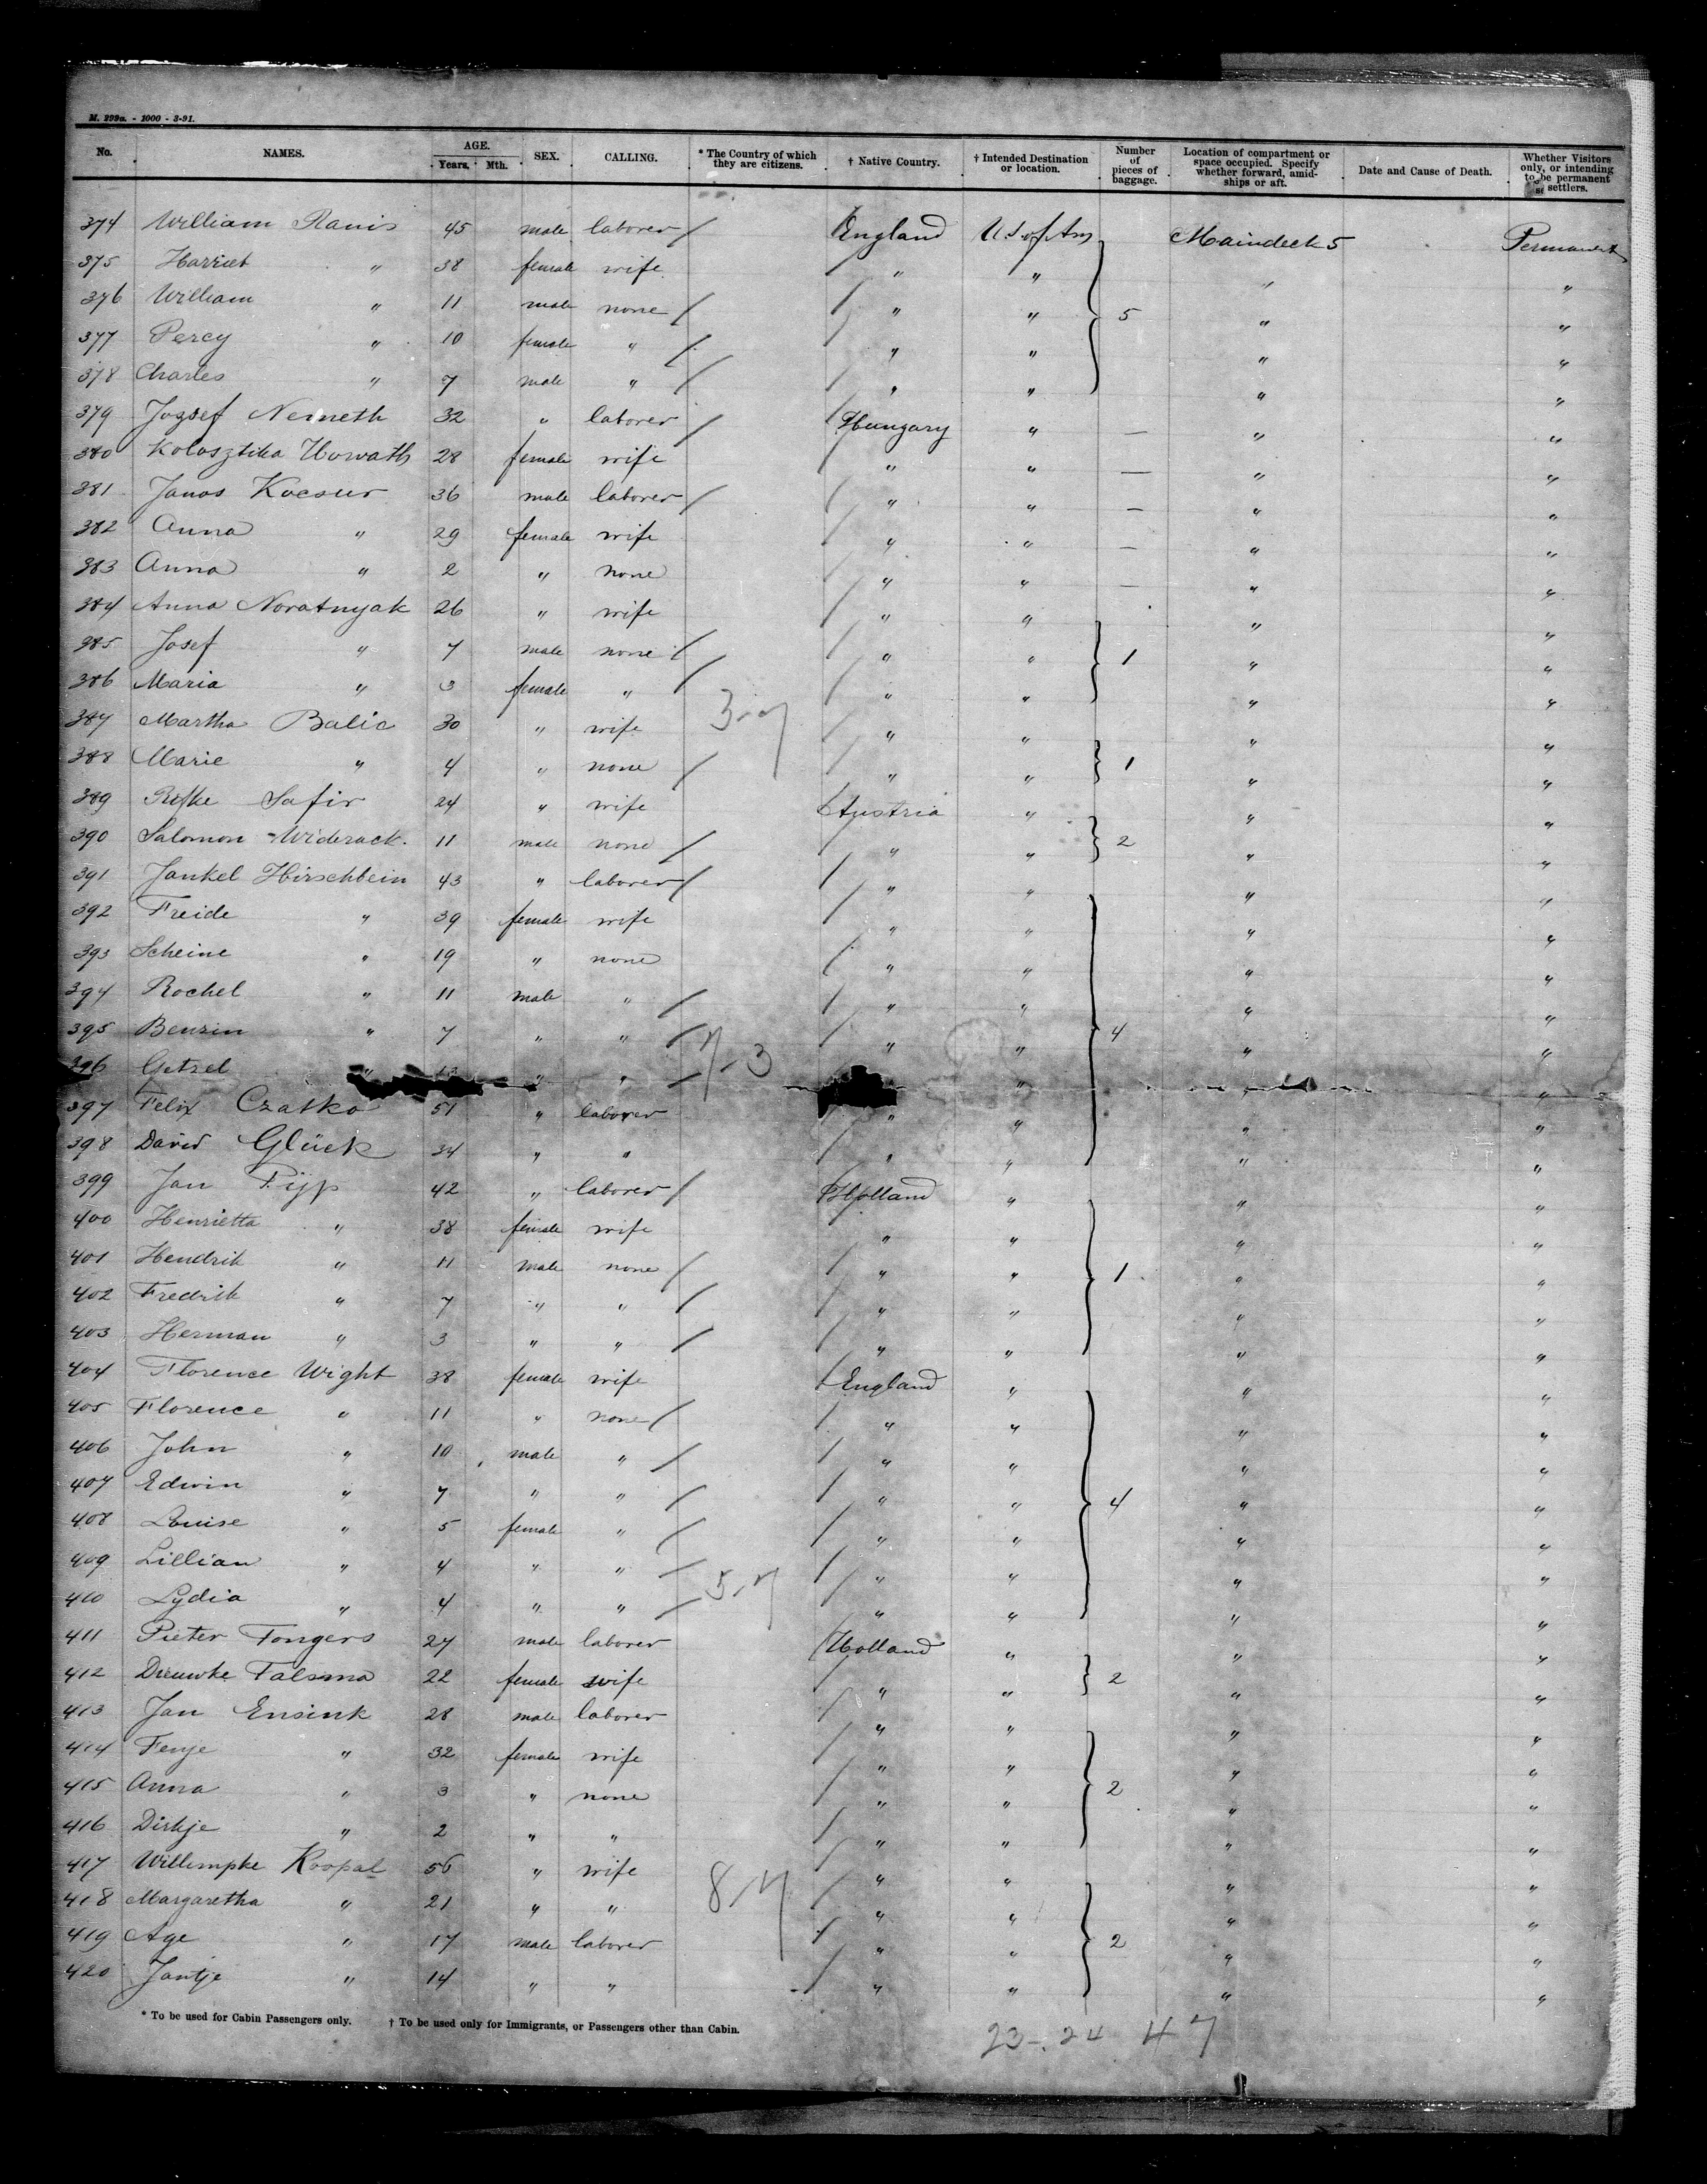 M. 299a. - 1000 - 3-91.
No. NAMES. AGE. Years. Mth. SEX. CALLING. * The Country of which they are citizens. † Native Country. † Intended Destination or location. Number of pieces of baggage. Location of compartment or space occupied. Specify whether forward, amidships or aft. Date and Cause of Death. Whether Visitors only, or intending to be permanent settlers.
374 William Ranis 45 male laborer / England U.S. of Am Maindeck 5 Permanent
375 Harriet " 38 female wife " " " "
376 William " 11 male none / " " 5 " "
377 Percy " 10 female " / " " " "
378 Charles " 7 male " / " " " "
379 Jozsef Nemeth 32 " laborer / Hungary " — " "
380 Kolosztika Horvath 28 female wife " " — " "
381 Janos Kocsur 36 male laborer / " " — " "
382 Anna " 29 female wife " " — " "
383 Anna " 2 " none " " — " "
384 Anna Novatnyak 26 " wife " " " "
385 Josef " 7 male none / " " 1 " "
386 Maria " 3 female " / " " " "
387 Martha Balic 30 " wife 3-7 " " " "
388 Marie " 4 " none / " " 1 " "
389 Rifke Safir 24 " wife Austria " " "
390 Salomon Widerack 11 male none / " " 2 " "
391 Jankel Hirschbein 43 " laborer / " " " "
392 Freide " 39 female wife " " " "
393 Scheine " 19 " none " " " "
394 Rochel " 11 male " / " " " "
395 Benzin " 7 " " / 7-3 " " 4 " "
396 Getzel " " " / " " "
397 Felix Czatko 51 " laborer " " " "
398 David Glück 34 " " " " " "
399 Jan Pijp 42 " laborer / Holland " " "
400 Henrietta " 38 female wife " " " "
401 Hendrik " 11 male none / " " 1 " "
402 Fredrik " 7 " " / " " " "
403 Herman " 3 " " / " " " "
404 Florence Wight 38 female wife England " " "
405 Florence " 11 " none / " " " "
406 John " 10 male " / " " " "
407 Edwin " 7 " " / " " 4 " "
408 Louise " 5 female " / " " " "
409 Lillian " 4 " " / " " " "
410 Lydia " 4 " " / 5-7 " " " "
411 Pieter Tongers 27 male laborer Holland " " "
412 Dieuwke Talsma 22 female wife " " 2 " "
413 Jan Ensink 28 male laborer " " " "
414 Fenje " 32 female wife " " " "
415 Anna " 3 " none " " 2 " "
416 Dirkje " 2 " " " " " "
417 Willempke Koopal 56 " wife 8-7 " " " "
418 Margaretha " 21 " " " " " "
419 Age " 17 male laborer " " 2 " "
420 Jantje " 14 " " " " " "
* To be used for Cabin Passengers only. † To be used only for Immigrants, or Passengers other than Cabin.
23-24 47